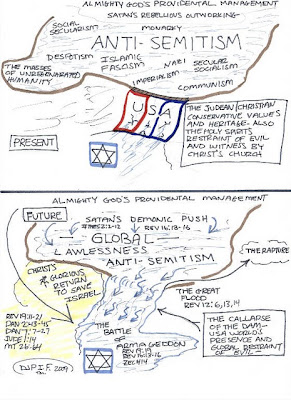 ALMIGHTY GOD'S PROVIDENTAL MANAGEMENT
SATAN'S REBELLIOUS OUTWORKING-
SOCIAL
SECULARISM
MONARKY
ANTI-SEMITISM
DESPOTISM
ISLAMIC
FASCISM
NAZI
SECULAR
SOCIALISM
IMPERIALISM
COMMUNISM
THE MASSES
OF UNREGENARATED
HUMANITY
USA
THE JUDEAN/CHRISTIAN
CONSERVATIVE VALUE'S
AND HERITAGE-ALSO
THE HOLY SPIRITS
RESTRAINT OF EVIL
AND WITNESS BY
CHRIST'S CHURCH
PRESENT
ALMIGHTY GOD'S PROVIDENTAL MANAGEMENT
FUTURE
SATAN'S DEMONIC PUSH
REV 16:13-16
GLOBAL
LAWLESSNESS
ANTI-SEMITISM
THE RAPTURE
CHRIST'S
GLORIOUS
RETURN
TO SAVE
ISRAEL
REV 19:11-21
DAN 2:43-45
DAN 7:7-27
JUDE 1:14
MT 26:64
THE GREAT
FLOOD
REV 12:6,13,14
THE CALLAPSE
OF THE DAM-
USA WORLD'S
PRESENCE AND
GLOBAL RESTRAINT
OF EVIL-
THE
BATTLE
OF
ARMAGEDDON
REV 19:19
REV 16:13-16
ZEC 14